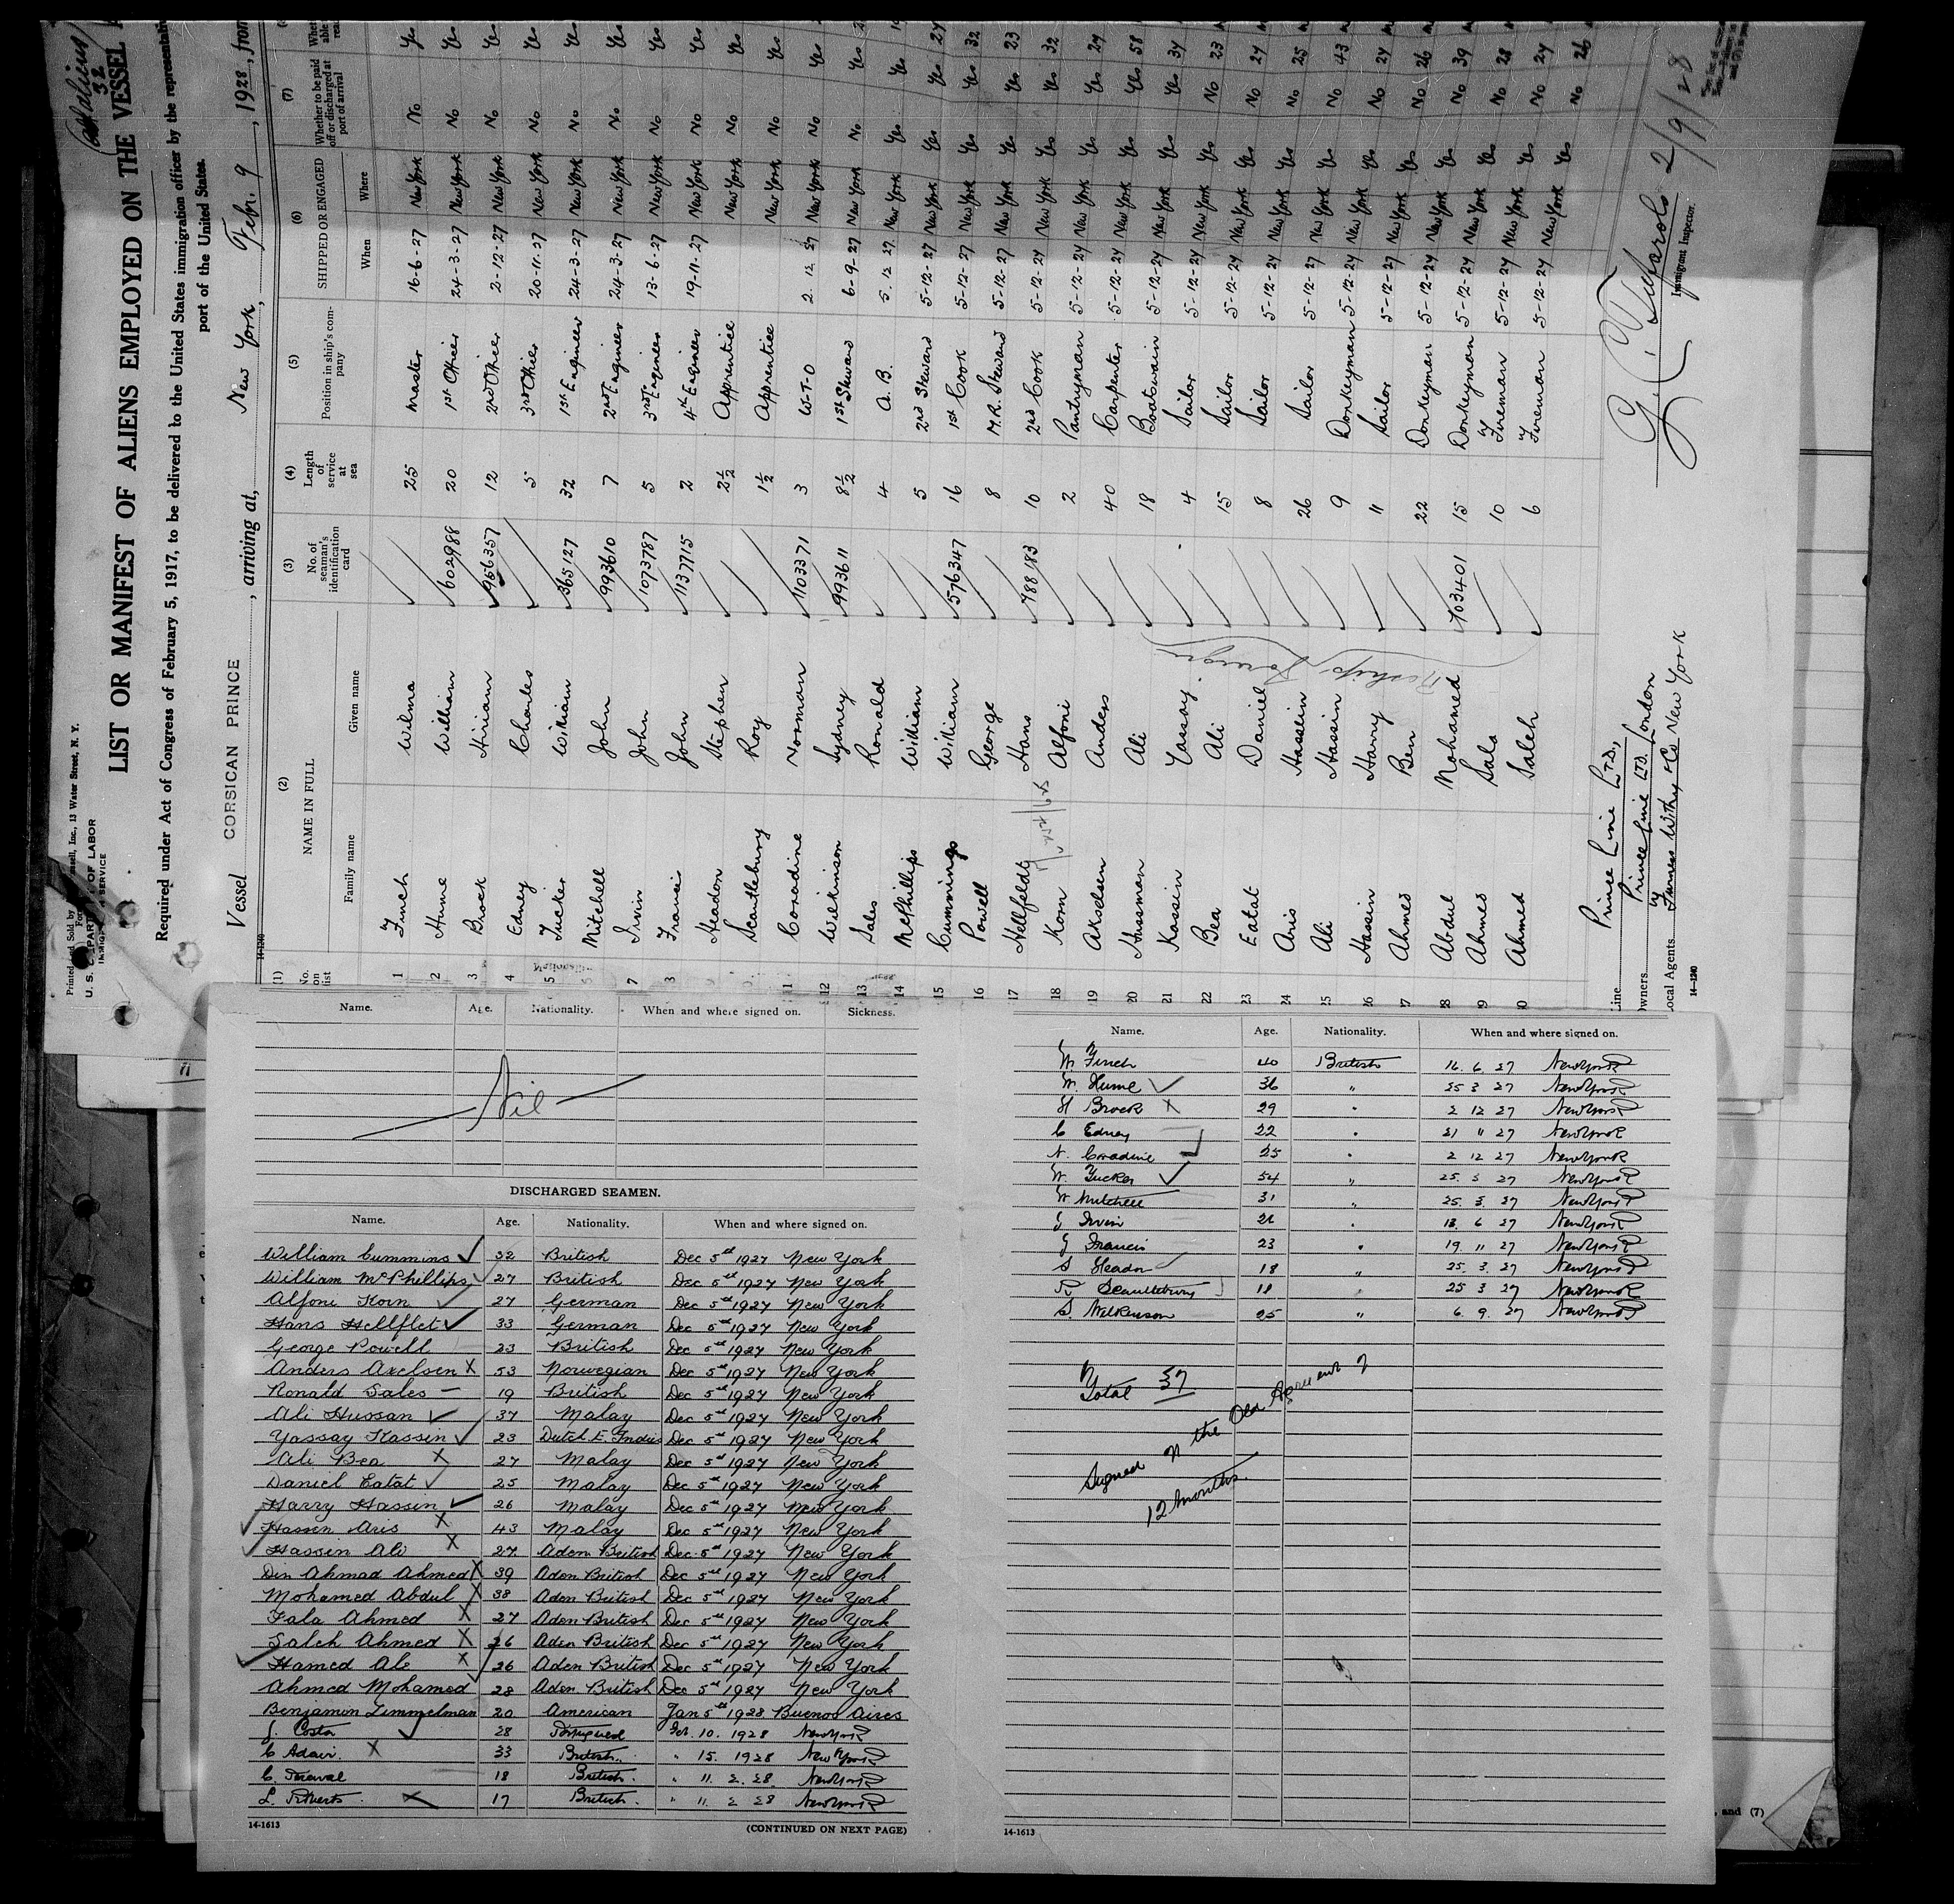 Printed and Sold by
, Inc., 13 Water Street, N. Y.
U. S. DEPARTMENT OF LABOR
IMMIGRATION SERVICE
Aliens
32
LIST OR MANIFEST OF ALIENS EMPLOYED ON THE VESSEL
Required under Act of Congress of February 5, 1917, to be delivered to the United States immigration officer by the representati
port of the United States.
Vessel CORSICAN PRINCE, arriving at, New York, Febr. 9, 1928, from
14-1240
(1) (2) (3) (4) (5) (6) (7)
No. on list NAME IN FULL No. of seaman's identification card Length of service at sea Position in ship's company SHIPPED OR ENGAGED Whether to be paid off or discharged at port of arrival
Family name Given name When Where
1 Finch Wilma 25 Master 16-6-27 New York No Yes
2 Hume William 602988 20 1st Officer 24-3-27 New York No Yes
3 Brock Hiriam 956357 12 2nd Officer 2-12-27 New York No Yes
4 Edney Charles 5 3rd Officer 20-11-27 New York No Yes
5 Tucker William 365127 32 1st Engineer 24-3-27 New York No Yes
Mitchell John 993610 7 2nd Engineer 24-3-27 New York No Yes
7 Irvin John 1073787 5 3rd Engineer 13-6-27 New York No Yes
Francis John 1137715 2 4th Engineer 19-11-27 New York No Yes
Headon Stephen 2½ Apprentice New York No Yes
Scantlebury Roy 1½ Apprentice New York No Yes
11 Corradine Norman 1103371 3 W-T-O 2.12.27 New York No Yes
12 Wilkinson Sydney 993611 8½ 1st Steward 6-9-27 New York No Yes
13 Sales Ronald 4 A.B. 5.12.27 New York Yes Yes
14 McPhillips William 5 2nd Steward 5-12-27 New York Yes Yes 27
15 Cummings William 576347 16 1st Cook 5-12-27 New York Yes Yes 32
16 Powell George 8 M.R. Steward 5-12-27 New York Yes Yes 23
17 Hellfeldt Hans 788183 10 2nd Cook 5-12-27 New York Yes Yes 32
18 Korn Alfoni 2 Pantryman 5-12-27 New York Yes Yes 27
19 Akselsen Anders 40 Carpenter 5-12-27 New York Yes Yes 58
20 Husman Ali 18 Boatswain 5-12-27 New York Yes Yes 37
21 Kassin Yassay 4 Sailor 5-12-27 New York Yes No 23
22 Bea Ali 15 Sailor 5-12-27 New York Yes No 27
23 Eatat Daniel 8 Sailor 5-12-27 New York Yes No 25
24 Aris Hassein 26 Sailor 5-12-27 New York Yes No 43
25 Ali Hassin 9 Donkeyman 5-12-27 New York Yes No 27
26 Hassin Harry 11 Sailor 5-12-27 New York Yes No 26
27 Ahmes Ben 22 Donkeyman 5-12-27 New York Yes No 39
28 Abdul Mohamed 703401 15 Donkeyman 5-12-27 New York Yes No 28
29 Ahmes Sala 10 Fireman 5-12-27 New York Yes No 27
30 Ahmed Saleh 6 Fireman 5-12-27 New York Yes No 26
Line Prince Line LTD.,
Owners Prince Line LTD. London
Local Agents Furness Withy & Co New York
14-1240
2/9/28
Immigrant Inspector.
Name. Age. Nationality. When and where signed on. Sickness.
Nil
DISCHARGED SEAMEN.
Name. Age. Nationality. When and where signed on.
William Cummins 32 British Dec 5th 1927 New York
William McPhillips 27 British Dec 5th 1927 New York
Alfoni Korn 27 German Dec 5th 1927 New York
Hans Hellflet 33 German Dec 5th 1927 New York
George Powell 23 British Dec 5th 1927 New York
Anders Axelsen X 53 Norwegian Dec 5th 1927 New York
Ronald Sales 19 British Dec 5th 1927 New York
Ali Hussan 37 Malay Dec 5th 1927 New York
Yassay Kassin 23 Dutch E. Indies Dec 5th 1927 New York
Ali Bea X 27 Malay Dec 5th 1927 New York
Daniel Eatat 25 Malay Dec 5th 1927 New York
Harry Hassin 26 Malay Dec 5th 1927 New York
Hassen Aris X 43 Malay Dec 5th 1927 New York
Hassin Ali X 27 Aden British Dec 5th 1927 New York
Din Ahmad Ahmed X 39 Aden British Dec 5th 1927 New York
Mohamed Abdul X 38 Aden British Dec 5th 1927 New York
Sala Ahmed X 27 Aden British Dec 5th 1927 New York
Saleh Ahmed X 26 Aden British Dec 5th 1927 New York
Hamed Ale X 26 Aden British Dec 5th 1927 New York
Ahmed Mohamed 28 Aden British Dec 5th 1927 New York
Benjamon Zimmelman 20 American Jan 5th 1928 Buenos Aires
J. Costa 28 Feb. 10. 1928 New York
C Adair. X 33 British " 15. 1928 New York
C. 18 British " 11. 2. 28 New York
L. Roberts X 17 British " 11 2 28 New York
14-1613
(CONTINUED ON NEXT PAGE)
Name. Age. Nationality. When and where signed on.
W Finch 40 British 16. 6 27 New York
W. Hume 36 " 25 3 27 New York
H Brock X 29 " 2 12 27 New York
C Edney 22 " 21 11 27 New York
N. Corradine 25 " 2 12 27 New York
W. Tucker 54 " 25. 3 27 New York
W Mitchell 31 " 25. 3. 27 New York
J Irvin 21 " 13. 6 27 New York
J Francis 23 " 19. 11 27 New York
S Headon 18 " 25. 3. 27 New York
R Scantlebury 18 " 25 3 27 New York
S. Wilkinson 25 " 6. 9. 27 New York
Total 37
Signed on the Old Agreement 7
12 months.
14-1613
, and (7)